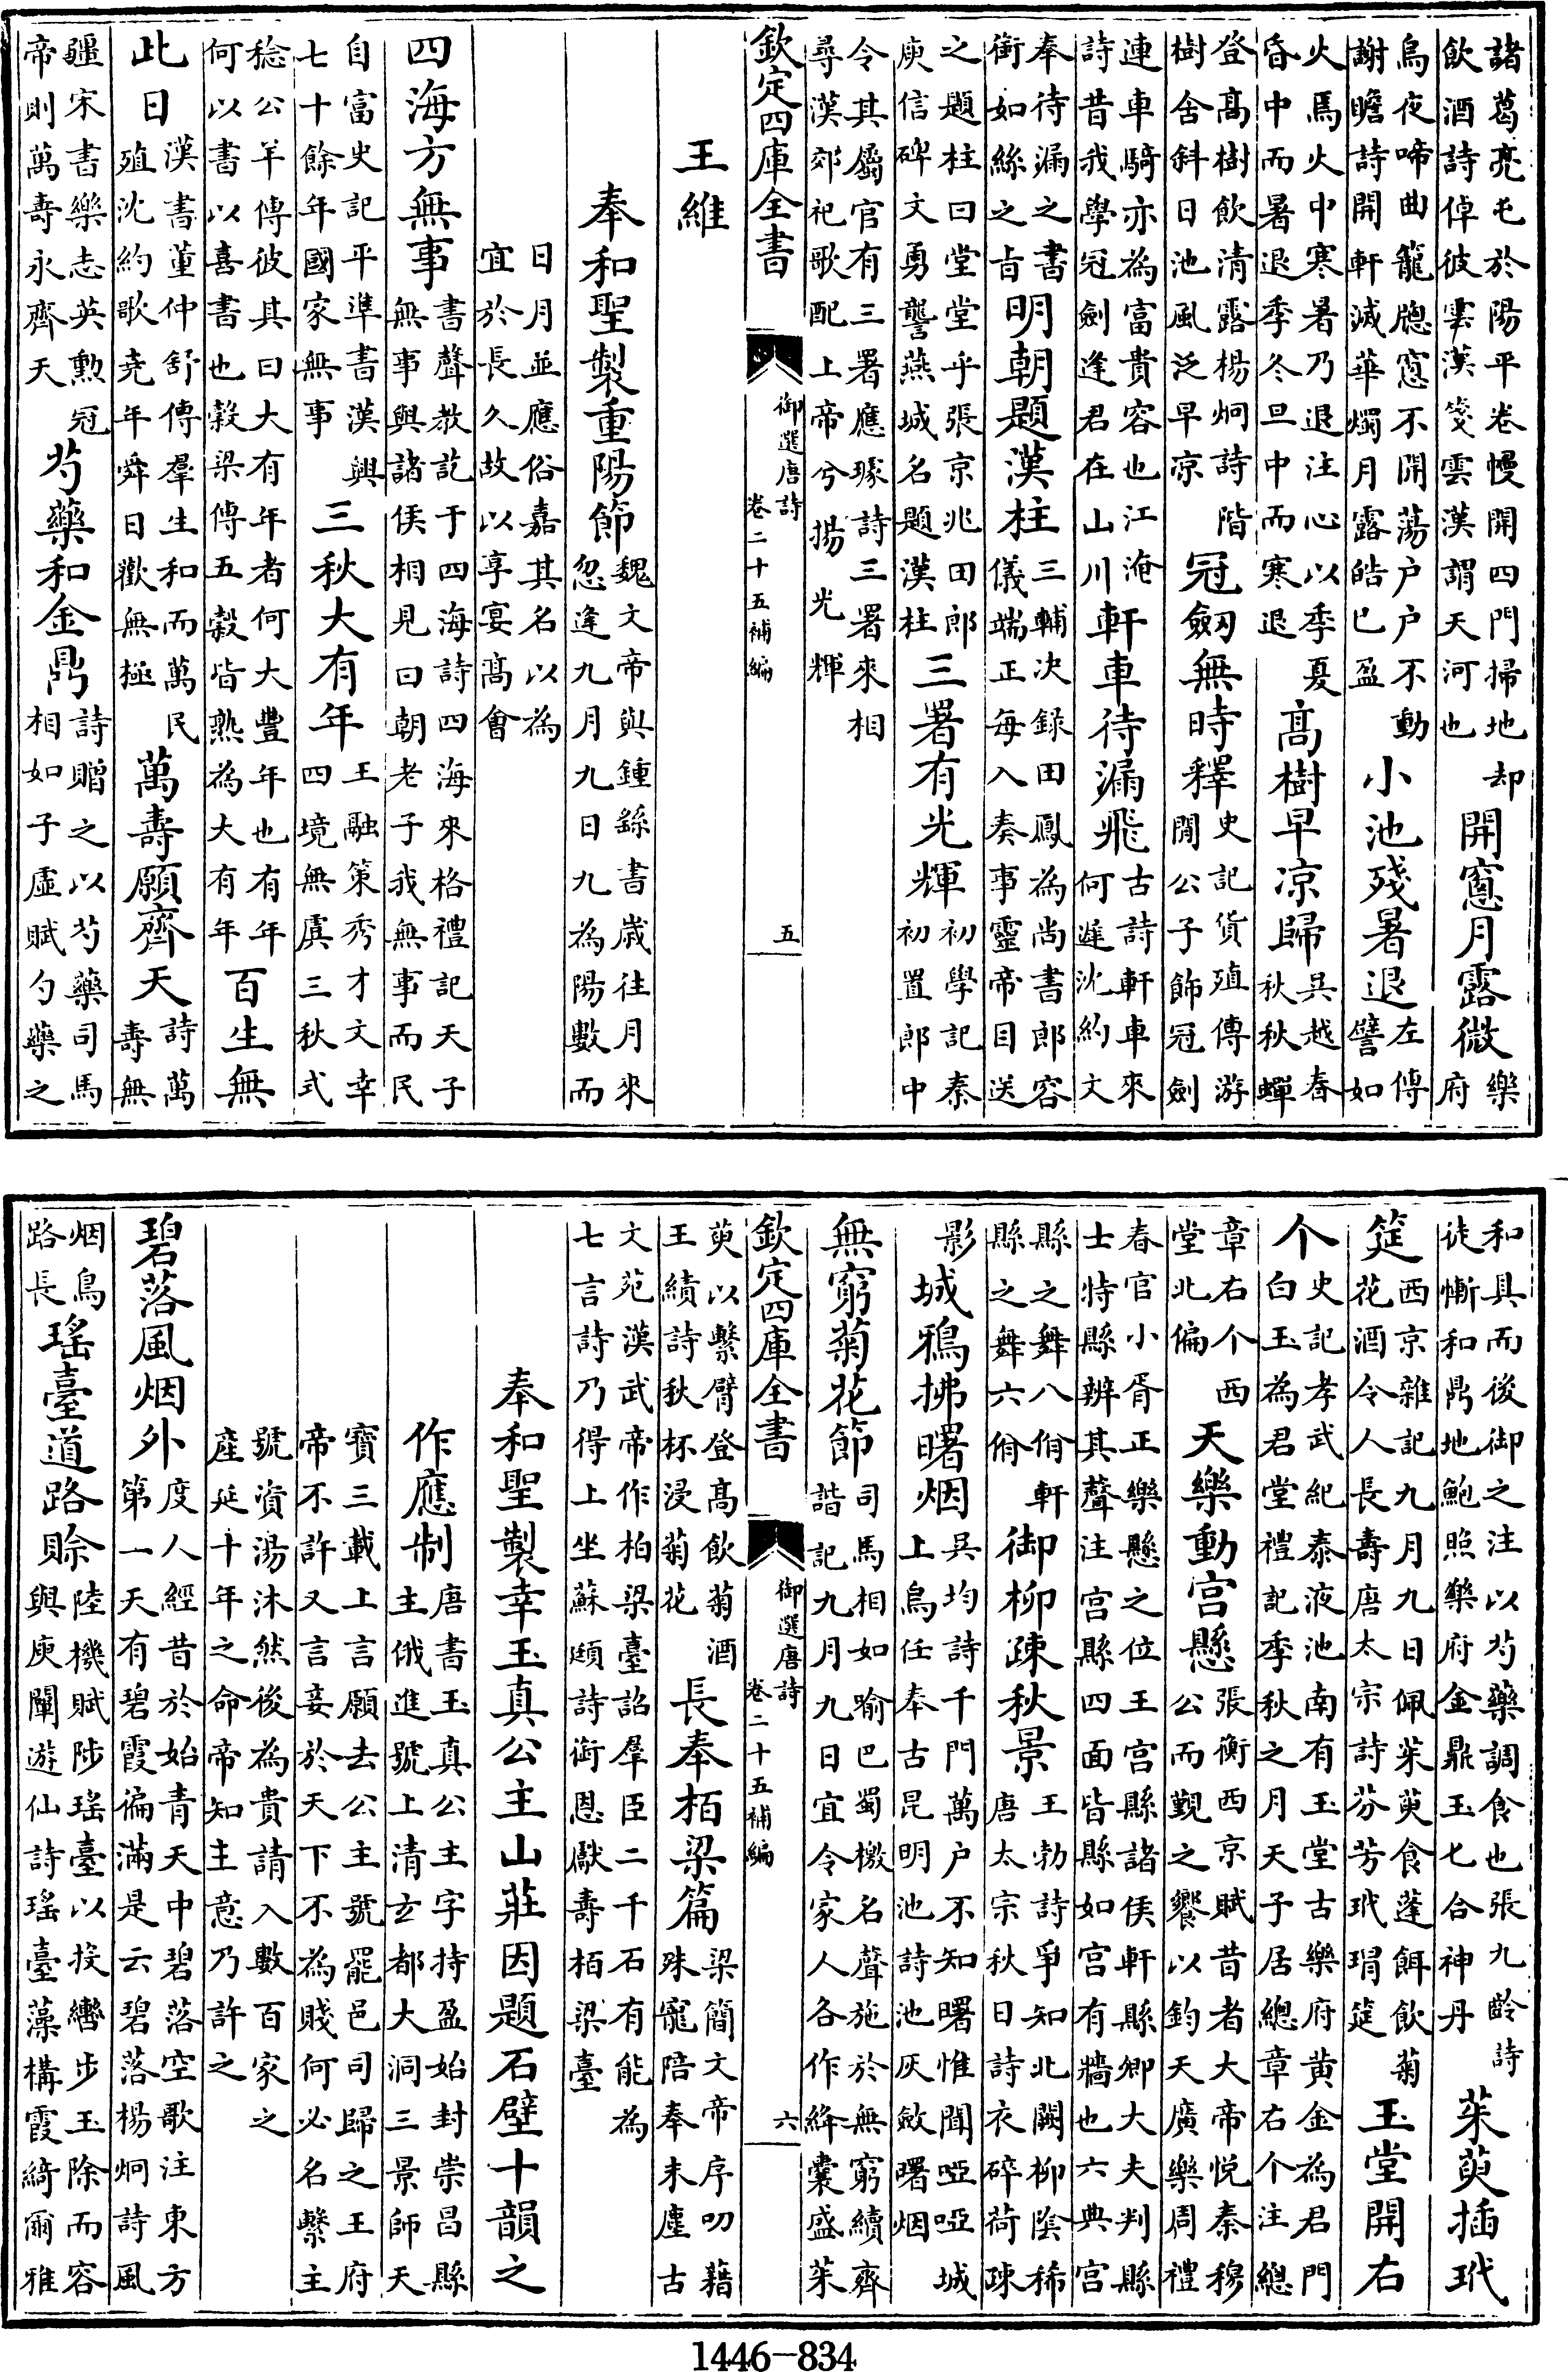 諸葛亮屯於陽平卷幔開四門掃地却飲酒詩倬彼雲漢箋雲漢謂天河也開窓月露微樂府
烏夜啼曲籠牕窓不開蕩户户不動謝瞻詩開軒滅華燭月露皓已盈小池殘暑退左傳譬如
火馬火中寒暑乃退注心以季夏昏中而暑退季冬旦中而寒退髙樹早凉歸吳越春秋秋蟬
登髙樹飲清露楊炯詩階樹舍斜日池風泛早凉冠劒無時釋史記貨殖傳游閒公子飾冠劍
連車騎亦為富貴容也江淹詩昔我學冠劍逢君在山川軒車待漏飛古詩軒車來何遲沈約文
奉待漏之書銜如絲之㫖明朝題漢柱三輔决録田鳳為尚書郎容儀端正每入奏事靈帝目送
之題柱曰堂堂乎張京兆田郎庾信碑文勇讋燕城名題漢柱三署有光輝初學記秦初置郎中
令其屬官有三署應璩詩三署來相尋漢郊祀歌配上帝兮揚光輝
欽定四庫全書 御選唐詩 卷二十五補編 五
王維
奉和聖製重陽節魏文帝與鍾繇書歲往月來忽逢九月九日九為陽數而
日月並應俗嘉其名以為宜於長久故以享宴髙會
四海方無事書聲教訖于四海詩四海來格禮記天子無事與諸侯相見曰朝老子我無事而民
自富史記平準書漢興七十餘年國家無事三秋大有年王融策秀才文幸四境無虞三秋式
稔公羊傳彼其曰大有年者何大豐年也有年何以書以喜書也穀梁傳五穀皆熟為大有年百生無
此日漢書董仲舒傳羣生和而萬民殖沈約歌堯年舜日歡無極萬壽願齊天詩萬壽無
疆宋書樂志英勲冠帝則萬壽永齊天芍藥和金鼎詩贈之以芍藥司馬相如子虛賦勺藥之
和具而後御之注以芍藥調食也張九齡詩徒慚和鼎地鮑照樂府金鼎玉匕合神丹茱萸插玳
筵西京雜記九月九日佩茱萸食蓬餌飲菊花酒令人長壽唐太宗詩芬芳玳瑁筵玉堂開右
个史記孝武紀泰液池南有玉堂古樂府黄金為君門白玉為君堂禮記季秋之月天子居總章右个注總
章右个西堂北偏天樂動宫懸張衡西京賦昔者大帝悦秦穆公而覲之饗以鈞天廣樂周禮
春官小胥正樂懸之位王宫縣諸侯軒縣卿大夫判縣士特縣辨其聲注宫縣四面皆縣如宫有牆也六典宫
縣之舞八佾軒縣之舞六佾御柳疎秋景王勃詩爭知北闕柳陰稀唐太宗秋日詩衣碎荷疎
影城鴉拂曙烟吳均詩千門萬户不知曙惟聞啞啞城上烏任奉古昆明池詩池灰斂曙烟
無窮菊花節司馬相如喻巴蜀檄名聲施於無窮續齊諧記九月九日宜令家人各作絳囊盛茱
欽定四庫全書 御選唐詩 卷二十五補編 六
萸以繫臂登髙飲菊酒王績詩秋杯浸菊花長奉栢梁篇梁簡文帝序叨藉殊寵陪奉末塵古
文苑漢武帝作柏梁臺詔羣臣二千石有能為七言詩乃得上坐蘇頲詩銜恩獻壽栢梁臺
奉和聖製幸玉真公主山莊因題石壁十韻之
作應制唐書玉真公主字持盈始封崇昌縣主俄進號上清玄都大洞三景師天
寶三載上言願去公主號罷邑司歸之王府帝不許又言妾於天下不為賤何必名繫主
號資湯沐然後為貴請入數百家之產延十年之命帝知主意乃許之
碧落風烟外度人經昔於始青天中碧落空歌注東方第一天有碧霞徧滿是云碧落楊炯詩風
烟鳥路長瑤臺道路賒陸機賦陟瑤臺以投轡步玉除而容與庾闡遊仙詩瑤臺藻構霞綺爾雅
1446-834